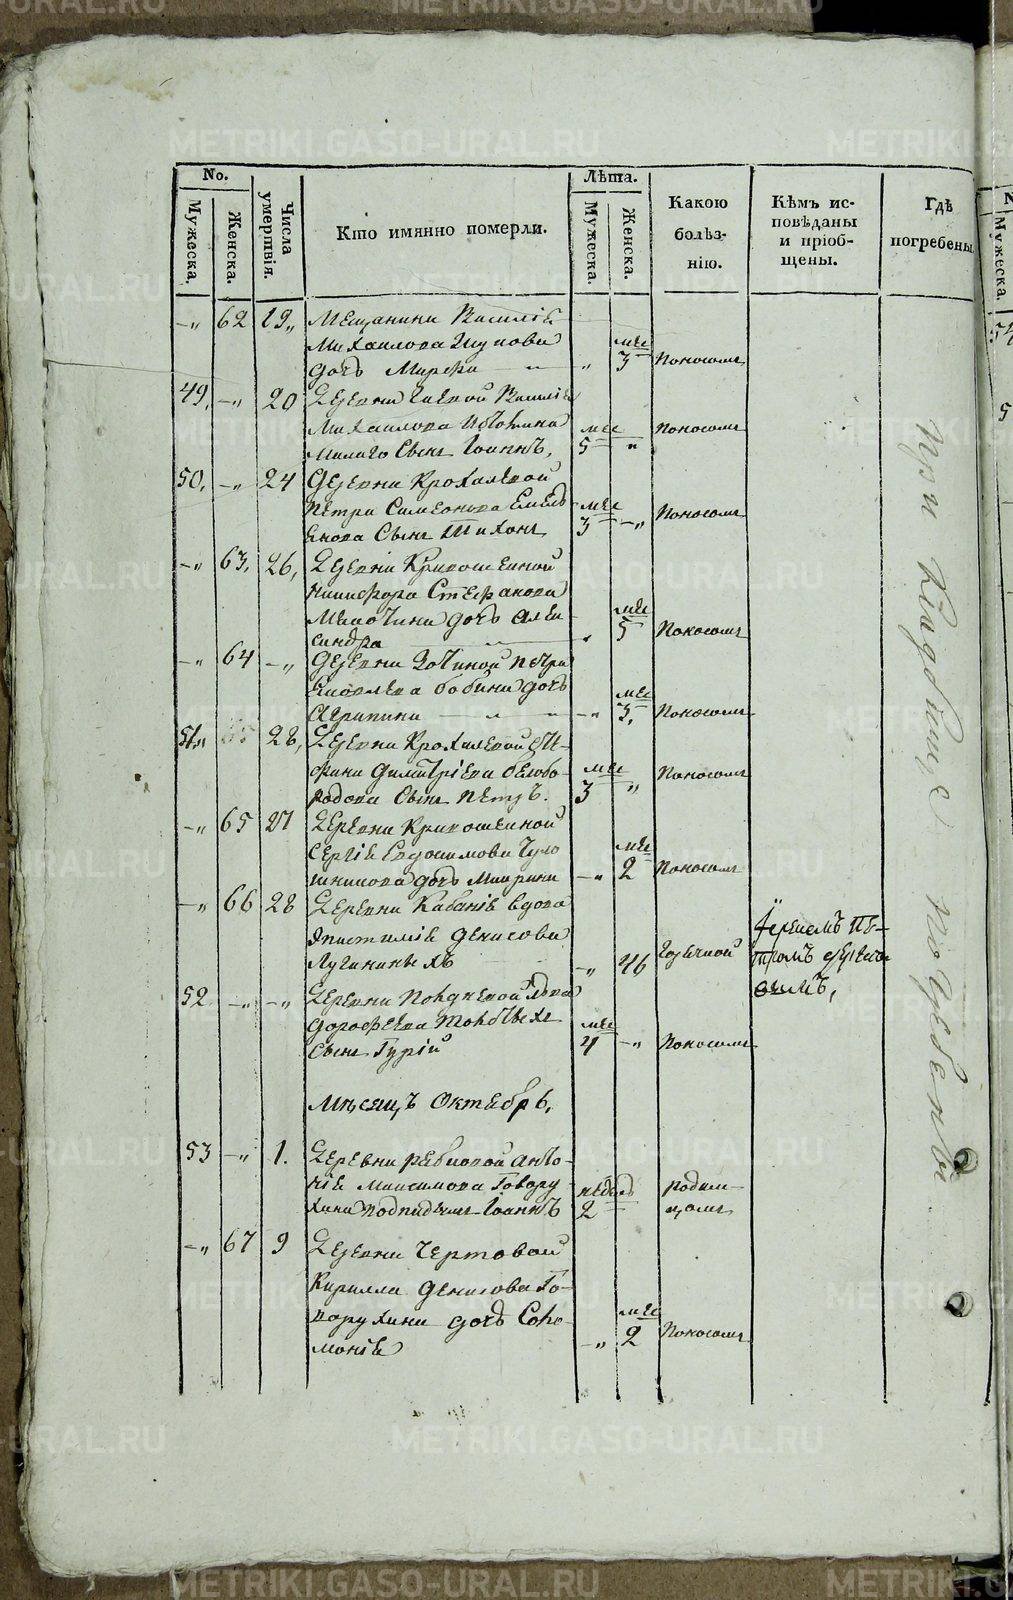 No.
Мужеска.
Женска.
Числа умертвія.
Кто имянно померли.
Лѣта.
Мужеска.
Женска.
Какою
болѣз-
нію.
Кѣмъ ис-
повѣданы
и пріоб-
щены.
Гдѣ
погребены.
62 19 Мещанина Василія
Михаилова
дочь Марѳа 3 Поносомъ
49 20 Деревни Василія
Михаилова
сынъ Іоаннъ, мѣс 5 Поносомъ
50. 24 Деревни Крохалевой
Петра Симеонова Емель-
янова сынъ Тихонъ мѣс 3 Поносомъ
63. 26, Деревни Кривошеиной
Никифора Стефанова
дочь Алек-
сандра мѣс 5 Поносомъ
64 Деревни Зотиной Петра
Яковлева Бобина дочь
Агрипина мѣс 3, Поносомъ
51 28, Деревни Крохалевой
Димитріева Белобо-
родова сынъ Петръ. мѣс 3 Поносомъ
65 27 Деревни Кривошеиной
Сергіе Евдокимова
дочь Маирина мѣс 2 Поносомъ
66 28 Деревни Кабаніе вдова
Епистиміе Денисова
Лучининыхъ 46 Горячкой
Іереемъ Пе-
тромъ
52 Деревни
Дорофеева
сынъ Гурій мѣс 4 Поносомъ
Мѣсяцъ Октябрь,
53 1. Деревни Анто-
ніе Максимова Говору-
хина Іоаннъ недель 2 Родим-
цомъ
67 9 Деревни Чертовой
Кирилла Денисова Го-
ворухина дочь Соло-
моніе мѣс 2 Поносомъ
При Кладбище погребены
Мужеска.
METRIKI.GASO-URAL.RU